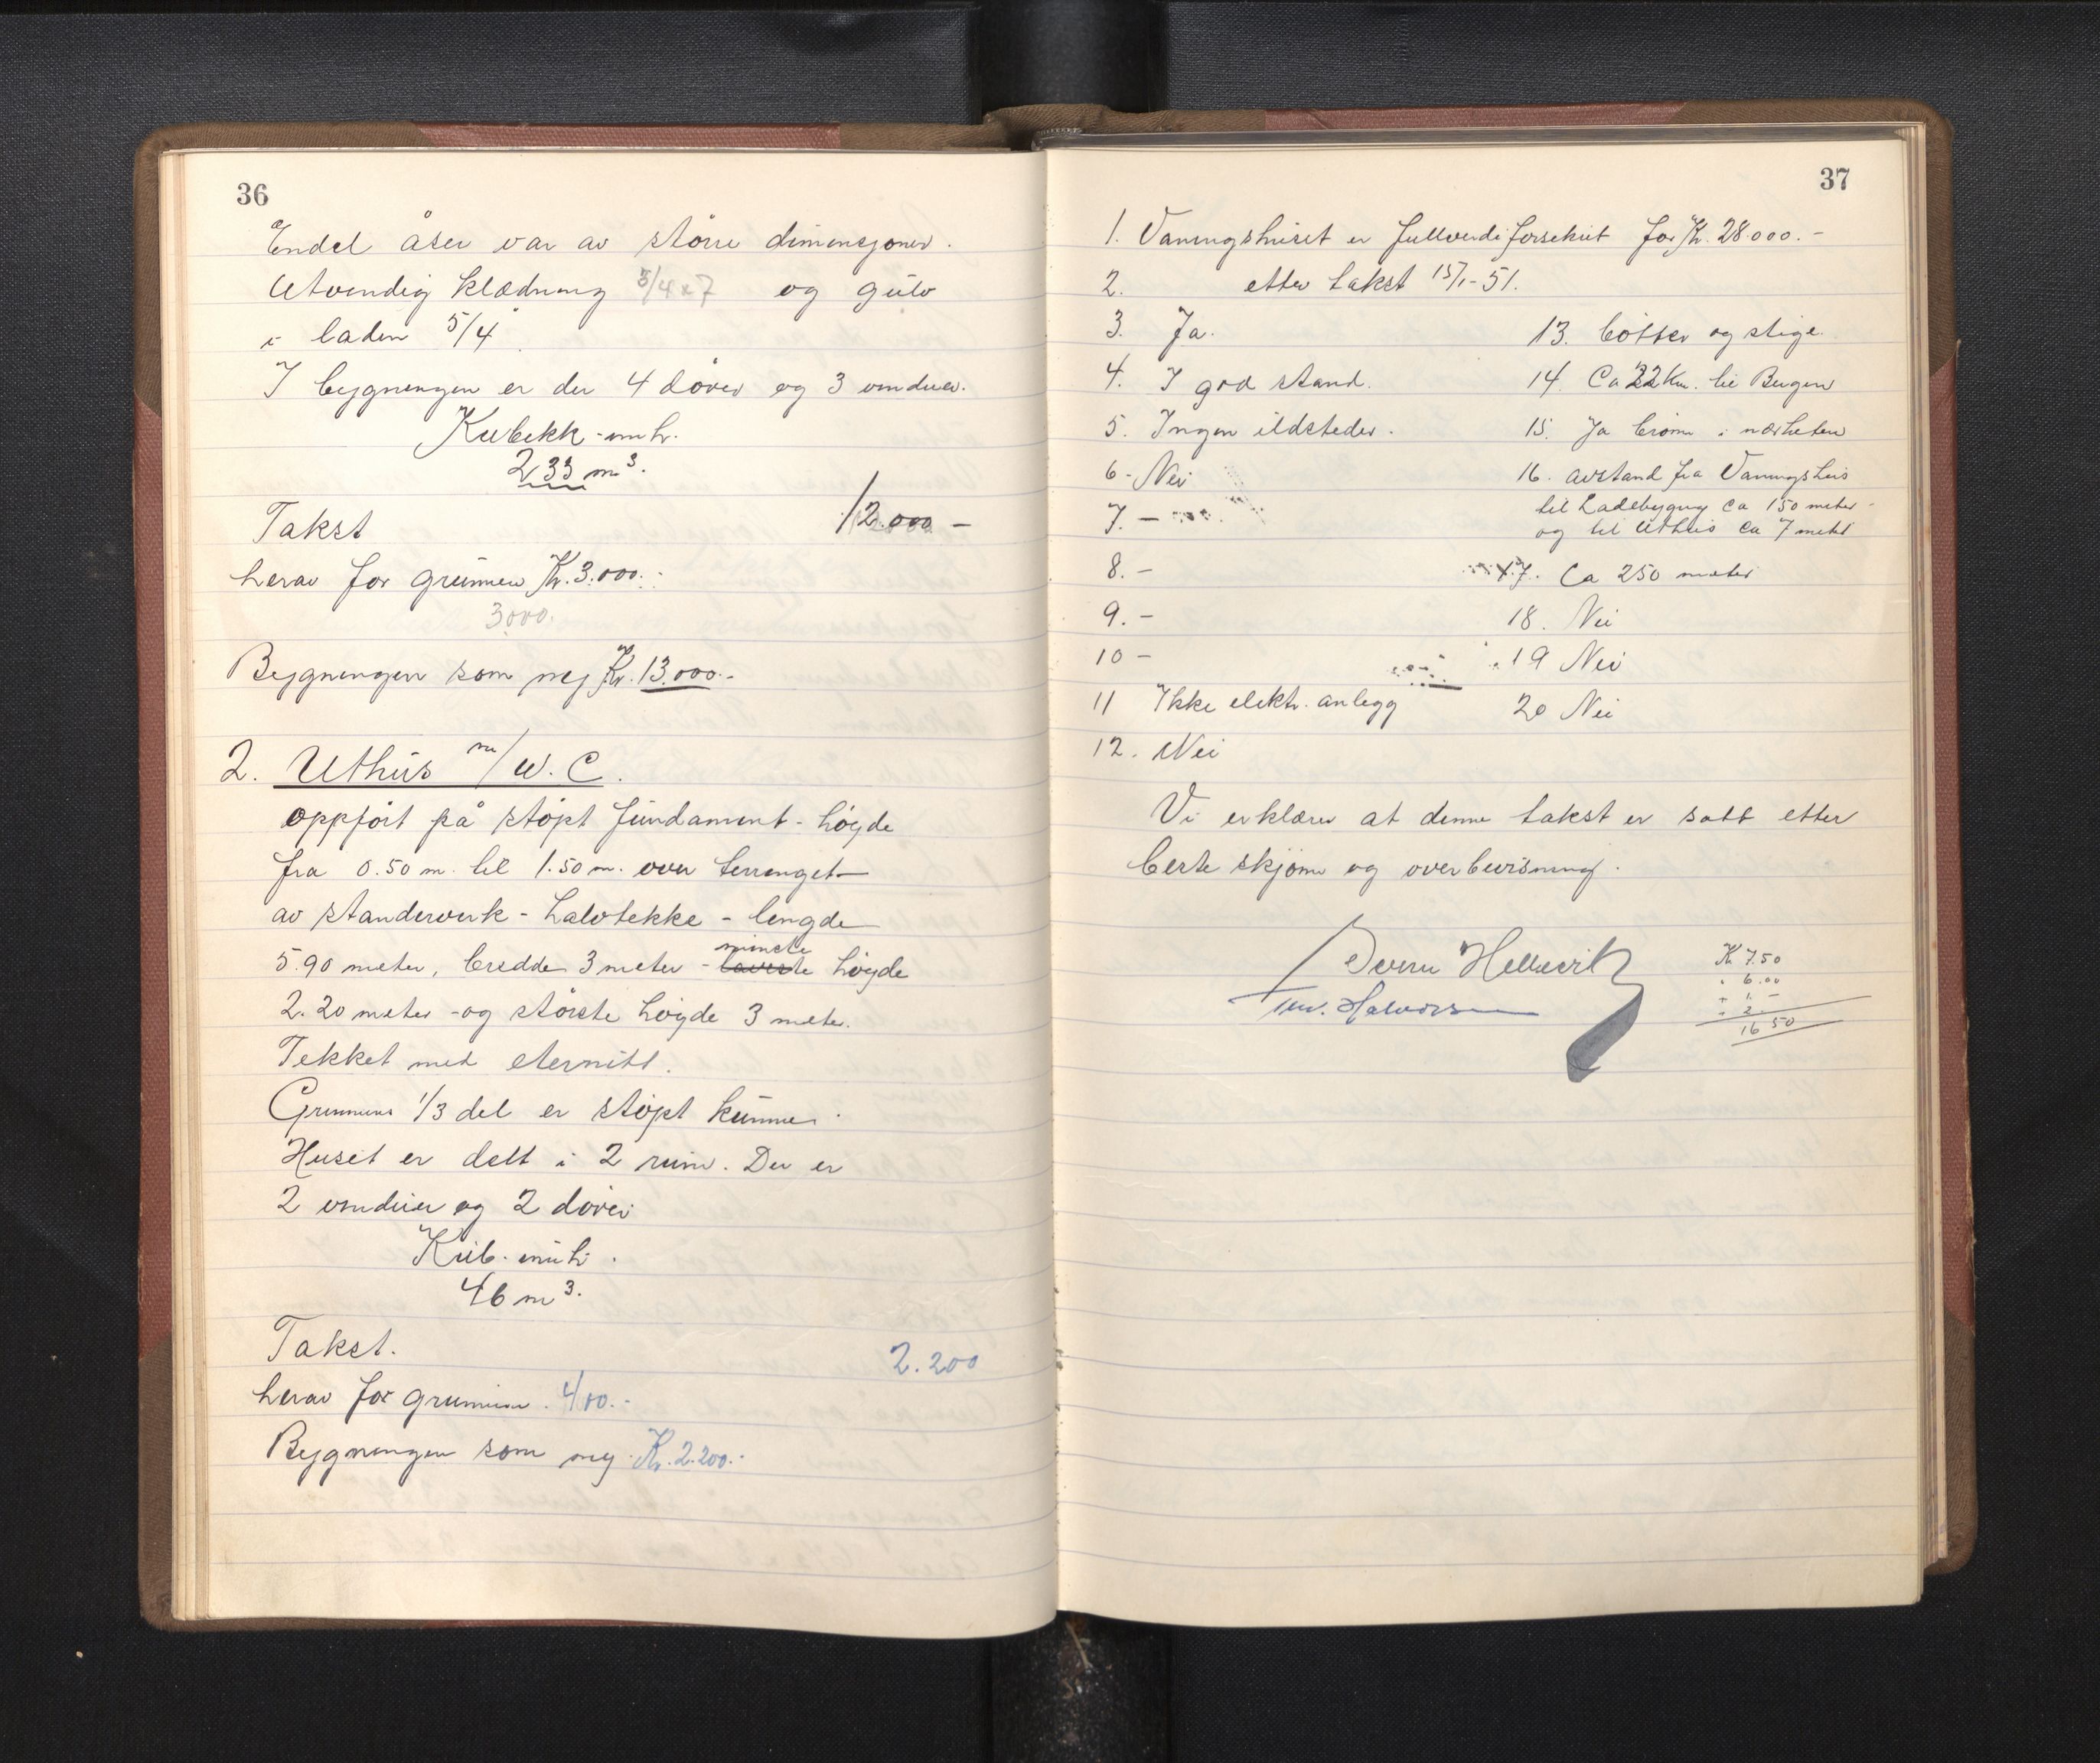 36
Endel åser var av større dimensjoner.
Utvendig klædning 5/4 x 7 og gulv
i laden 5/4"
I bygningen er der 4 dører og 3 vinduer.
Kubikk-innh.
233 m³.
Takst 12.000 –
herav for grunnen Kr. 3.000.-
3000.
Bygningen som ny Kr. 13.000.-
2. Uthus m/W.C.
oppført på støpt fundament - høyde
fra 0.50 m. til 1.50 m. over terrenget –
av standerverk - halvtekke - lengde
5.90 meter, bredde 3 meter - minste høyde
2.20 meter - og største høyde 3 meter.
Tekket med eternitt.
Grunnens 1/3 del er støpt kummer.
Huset er delt i 2 rum. Der er
2 vinduer og 2 dører
Kub. innh.
46 m³.
Takst. 2.200
herav for grunnen. 400.-
Bygningen som ny. Kr. 2.200.-
37
1. Vaningshuset er fullverdiforsekret for Kr. 28.000.-
2. etter takst 15/1-51.
3. Ja.
4. I god stand.
5. Ingen ildsteder.
6- Nei
7. –
8. –
9. –
10 –
11 Ikke elektr. anlegg
12. Nei
13. Bøtter og stige.
14. Ca 22 Km. til Bergen
15. Ja brønn i nærheten
16. avstand fra Vaningshus
til Ladebygning ca 150 meter -
og til Uthus ca 7 meter
17. Ca 250 meter
18. Nei
19 Nei
20 Nei
Vi erklærer at denne takst er satt etter
beste skjønn og overbevisning.
Sverre Hellevik
Halvorsen
Kr 7.50
" 6.00
+ 1. –
+ 2. –
16 50